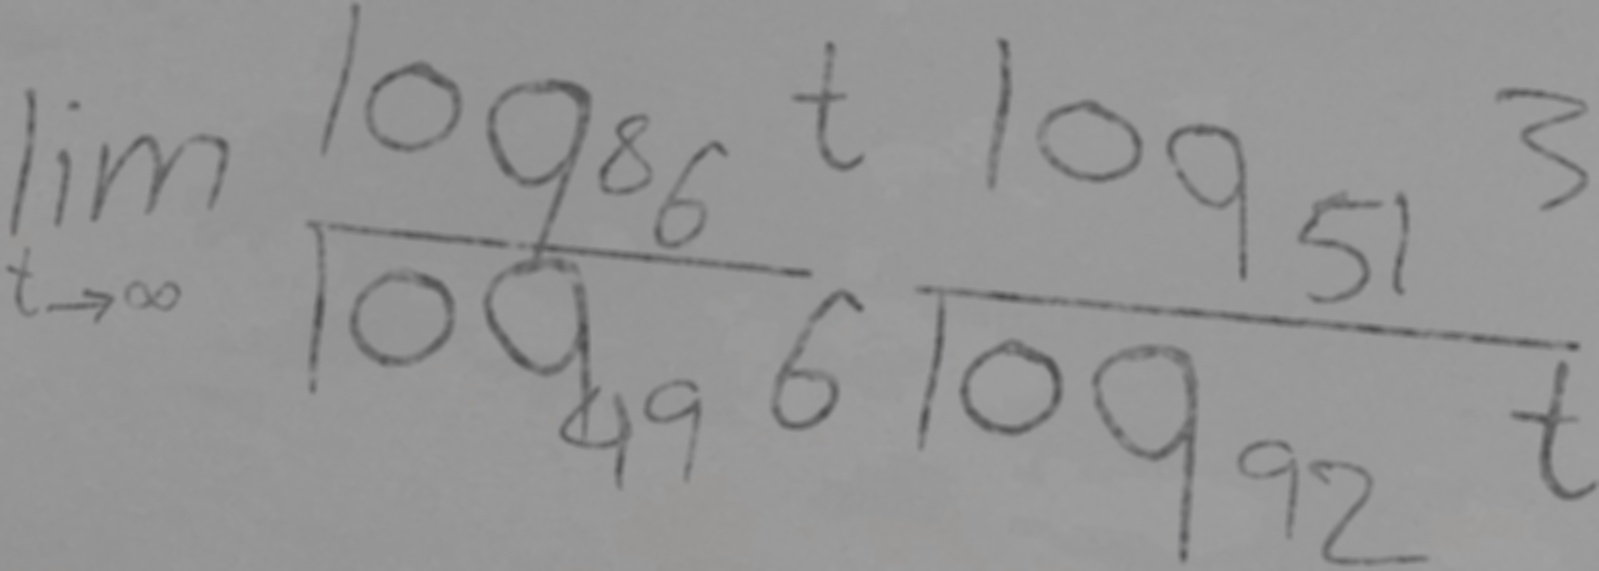 \lim_{t \to \infty} \frac{\log_{86} t}{\log_{49} 6} \frac{\log_{51} 3}{\log_{92} t}